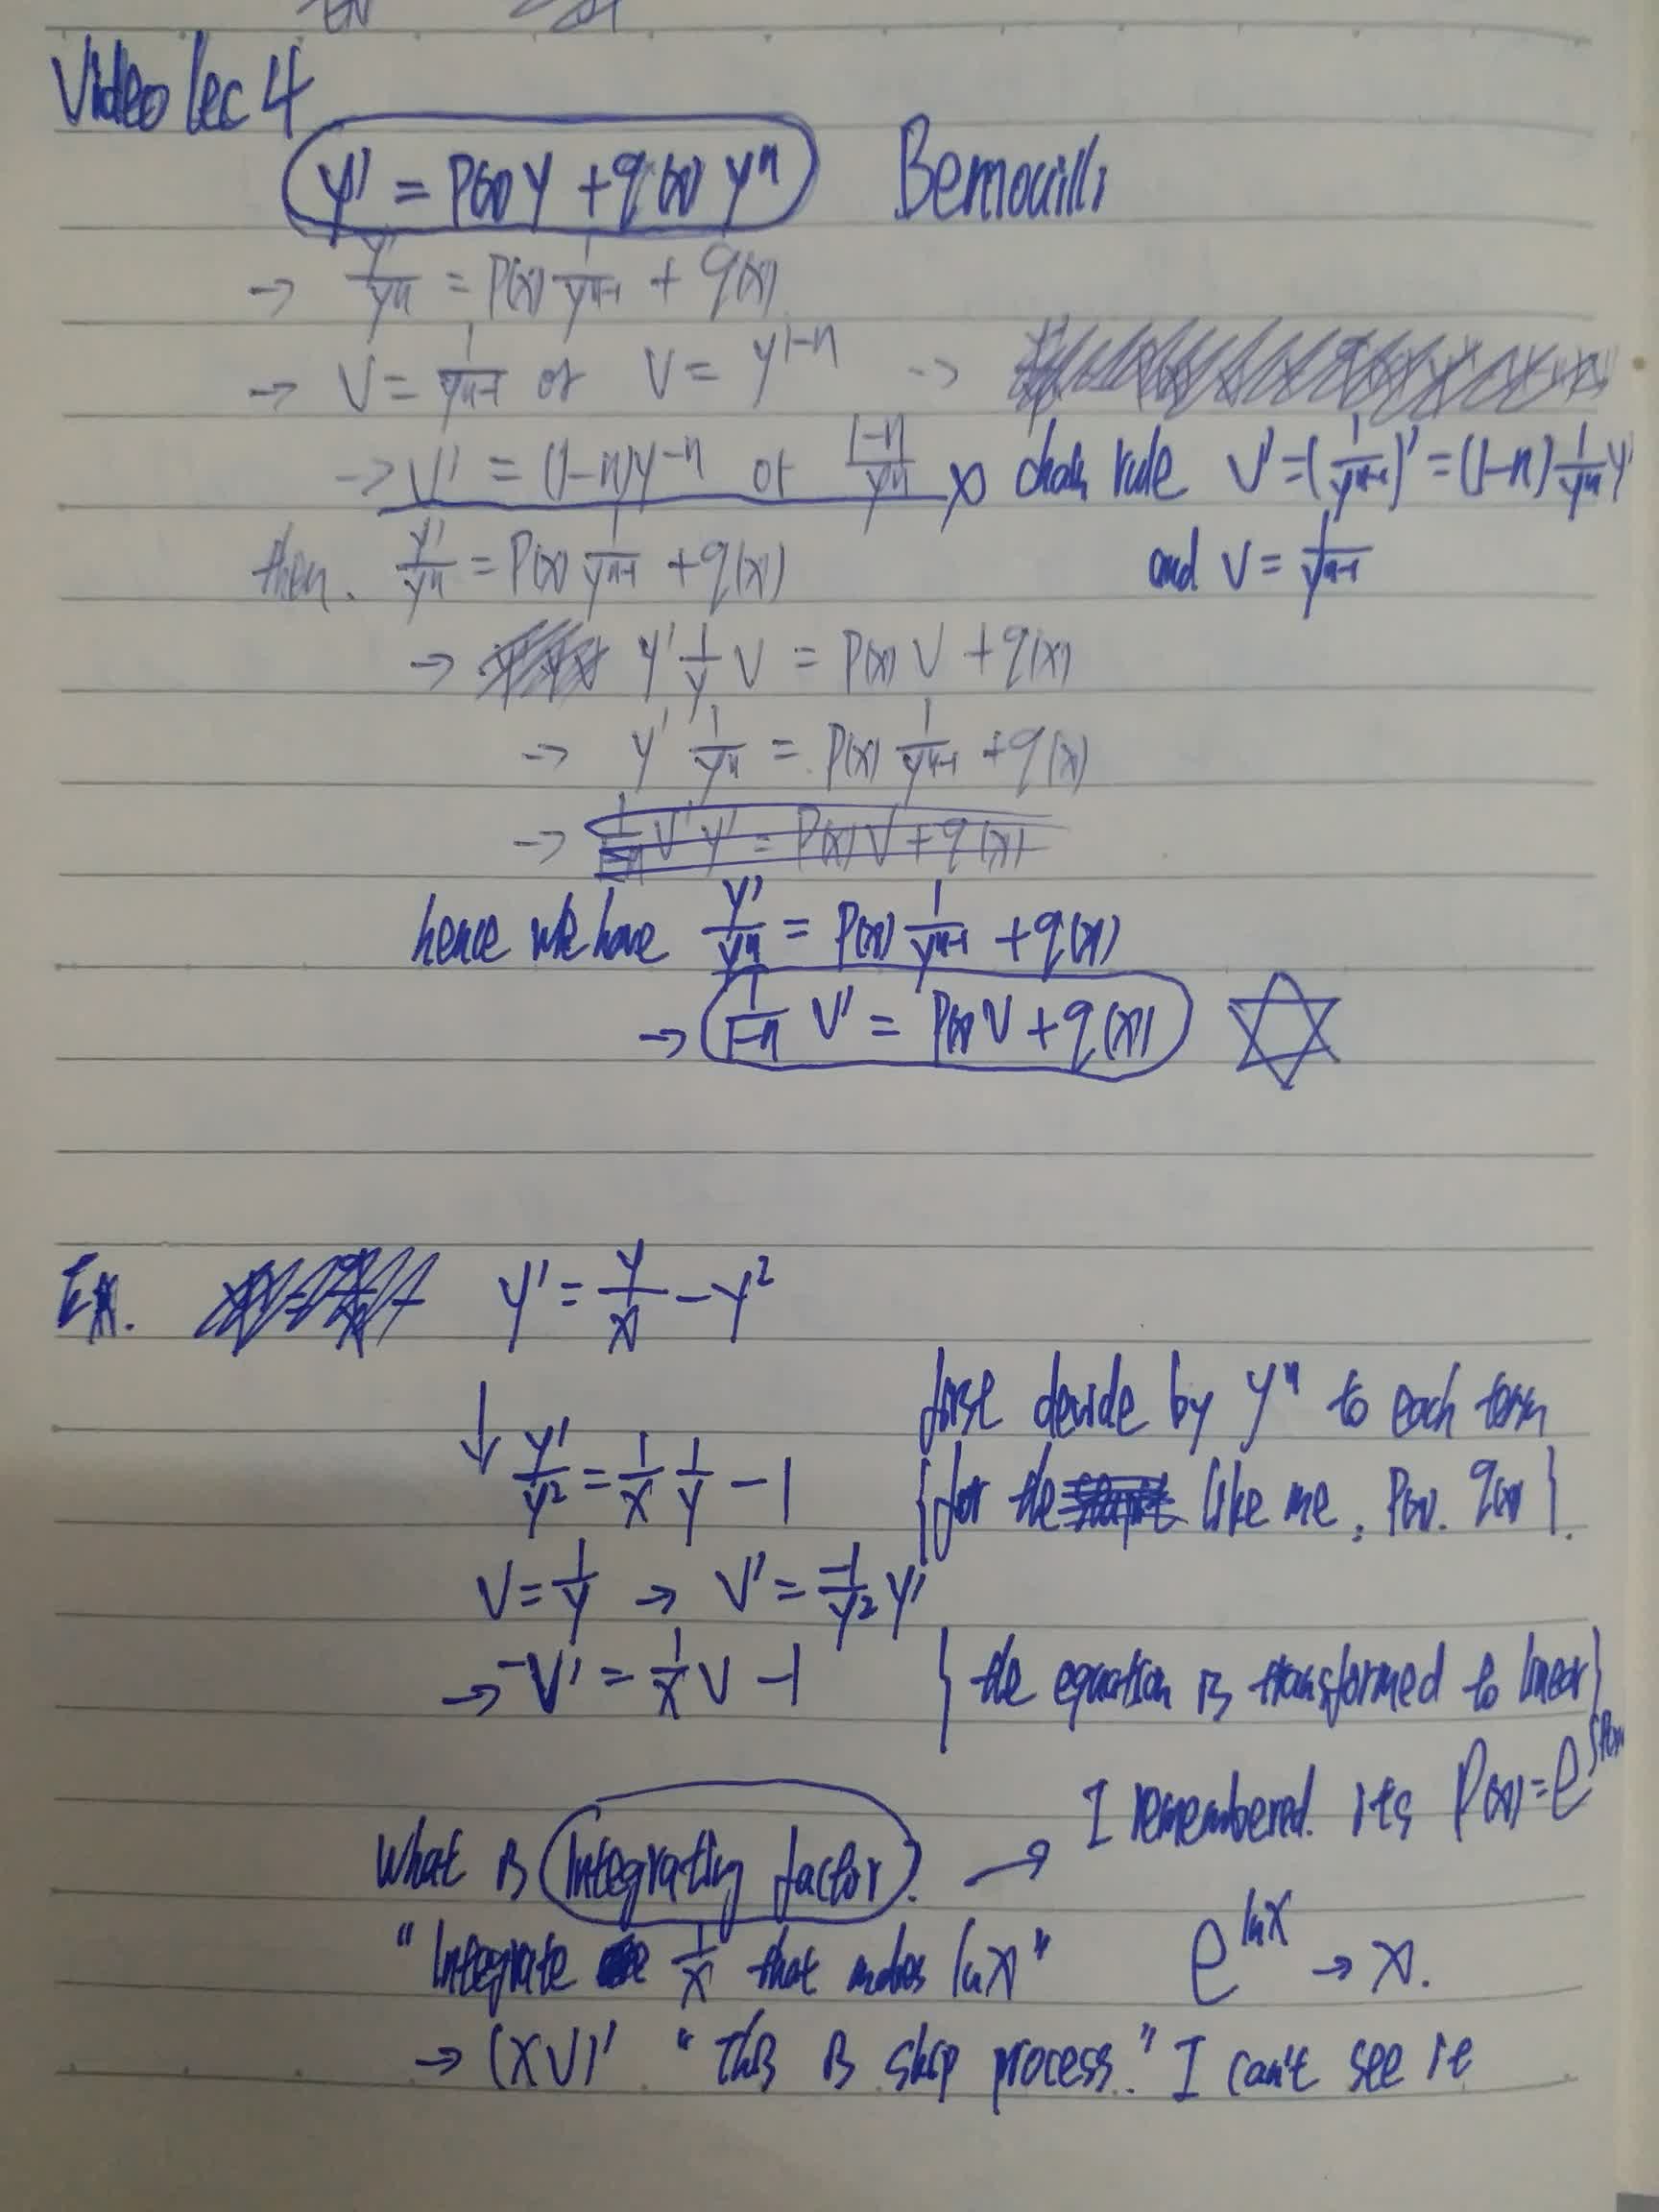 Video lec 4
y' = P(x)y + q(x) yⁿ Bernouilli
→ y'/yⁿ = P(x) 1/yⁿ⁻¹ + q(x)
→ V = 1/yⁿ⁻¹ or V = y¹⁻ⁿ →
→ V' = (1-n)y⁻ⁿ or (1-n)/yⁿ chain rule V' = (1/yⁿ⁻¹)' = (1-n) 1/yⁿ y'
and V = 1/yⁿ⁻¹
then. y'/yⁿ = P(x) 1/yⁿ⁻¹ + q(x)
→ y' 1/y V = P(x) V + q(x)
→ y' 1/yⁿ = P(x) 1/yⁿ⁻¹ + q(x)
→
hence we have y'/yⁿ = P(x) 1/yⁿ⁻¹ + q(x)
→ 1/(1-n) V' = P(x)V + q(x)
Ex. y' = y/x - y²
↓ first devide by yⁿ to each term
y'/y² = 1/x 1/y - 1 {for the like me, P(x). q(x)}.
V = 1/y → V' = -1/y² y'
→ -V' = 1/x V - 1 } the equation is transformed to linear}
What is integrating factor? → I remembered. its P(x) = e^∫P(x)
"Integrate 1/x that makes ln x" e^ln x → x.
→ (xV)' "this is skip process." I can't see it